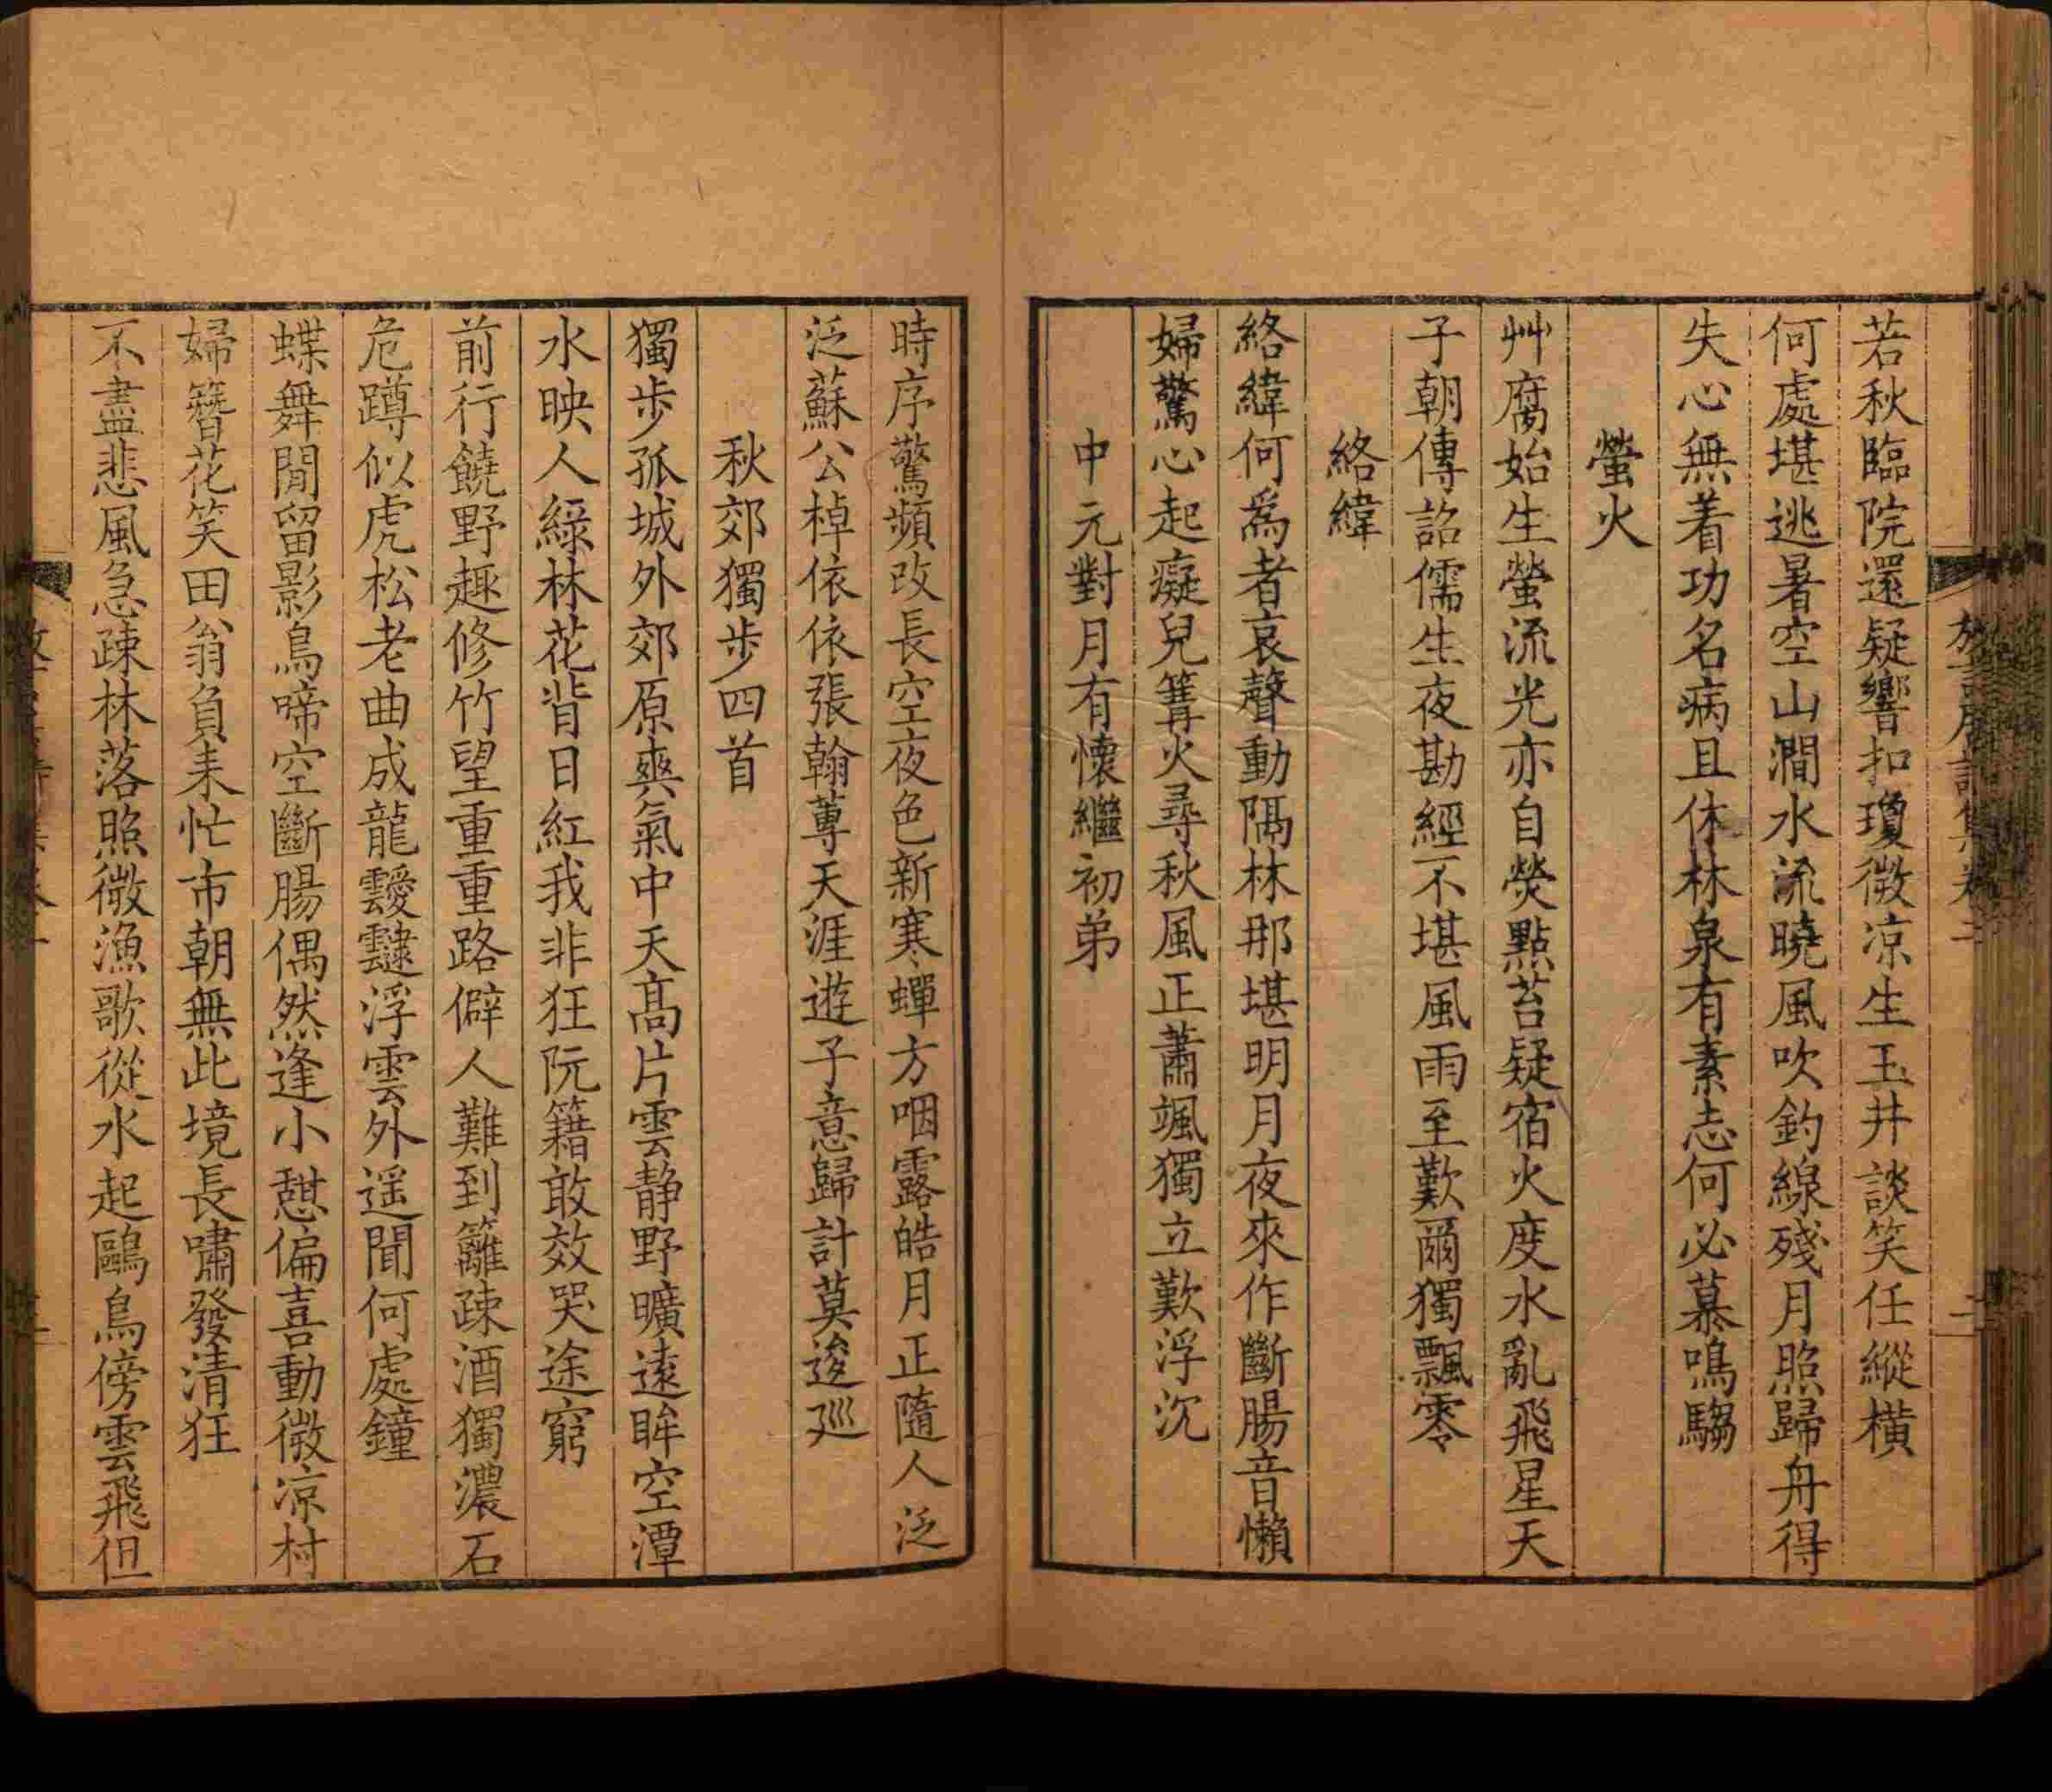 若秋臨院還疑響扣瓊微凉生玉井談笑任縱橫
何處堪逃暑空山澗水流曉風吹釣線殘月照歸舟得
失心無着功名病且休林泉有素志何必慕鳴騶
螢火
艸腐始生螢流光亦自熒點苔疑宿火度水亂飛星天
子朝傳詔儒生夜勘經不堪風雨至歎爾獨飄零
絡緯
絡緯何爲者哀聲動隔林那堪明月夜來作斷腸音懶
婦驚心起癡兒篝火尋秋風正蕭颯獨立歎浮沉
中元對月有懷繼初弟
時序驚頻改長空夜色新寒蟬方咽露皓月正隨人泛
泛蘇公棹依依張翰蓴天涯遊子意歸計莫逡巡
秋郊獨步四首
獨步孤城外郊原爽氣中天高片雲靜野曠遠眸空潭
水映人綠林花背日紅我非狂阮籍敢效哭途窮
前行饒野趣修竹望重重路僻人難到籬疎酒獨濃石
危蹲似虎松老曲成龍靉靆浮雲外遥聞何處鐘
蝶舞閒留影鳥啼空斷腸偶然逢小憇偏喜動微凉村
婦簪花笑田翁負耒忙市朝無此境長嘯發清狂
不盡悲風急疎林落照微漁歌從水起鷗鳥傍雲飛但